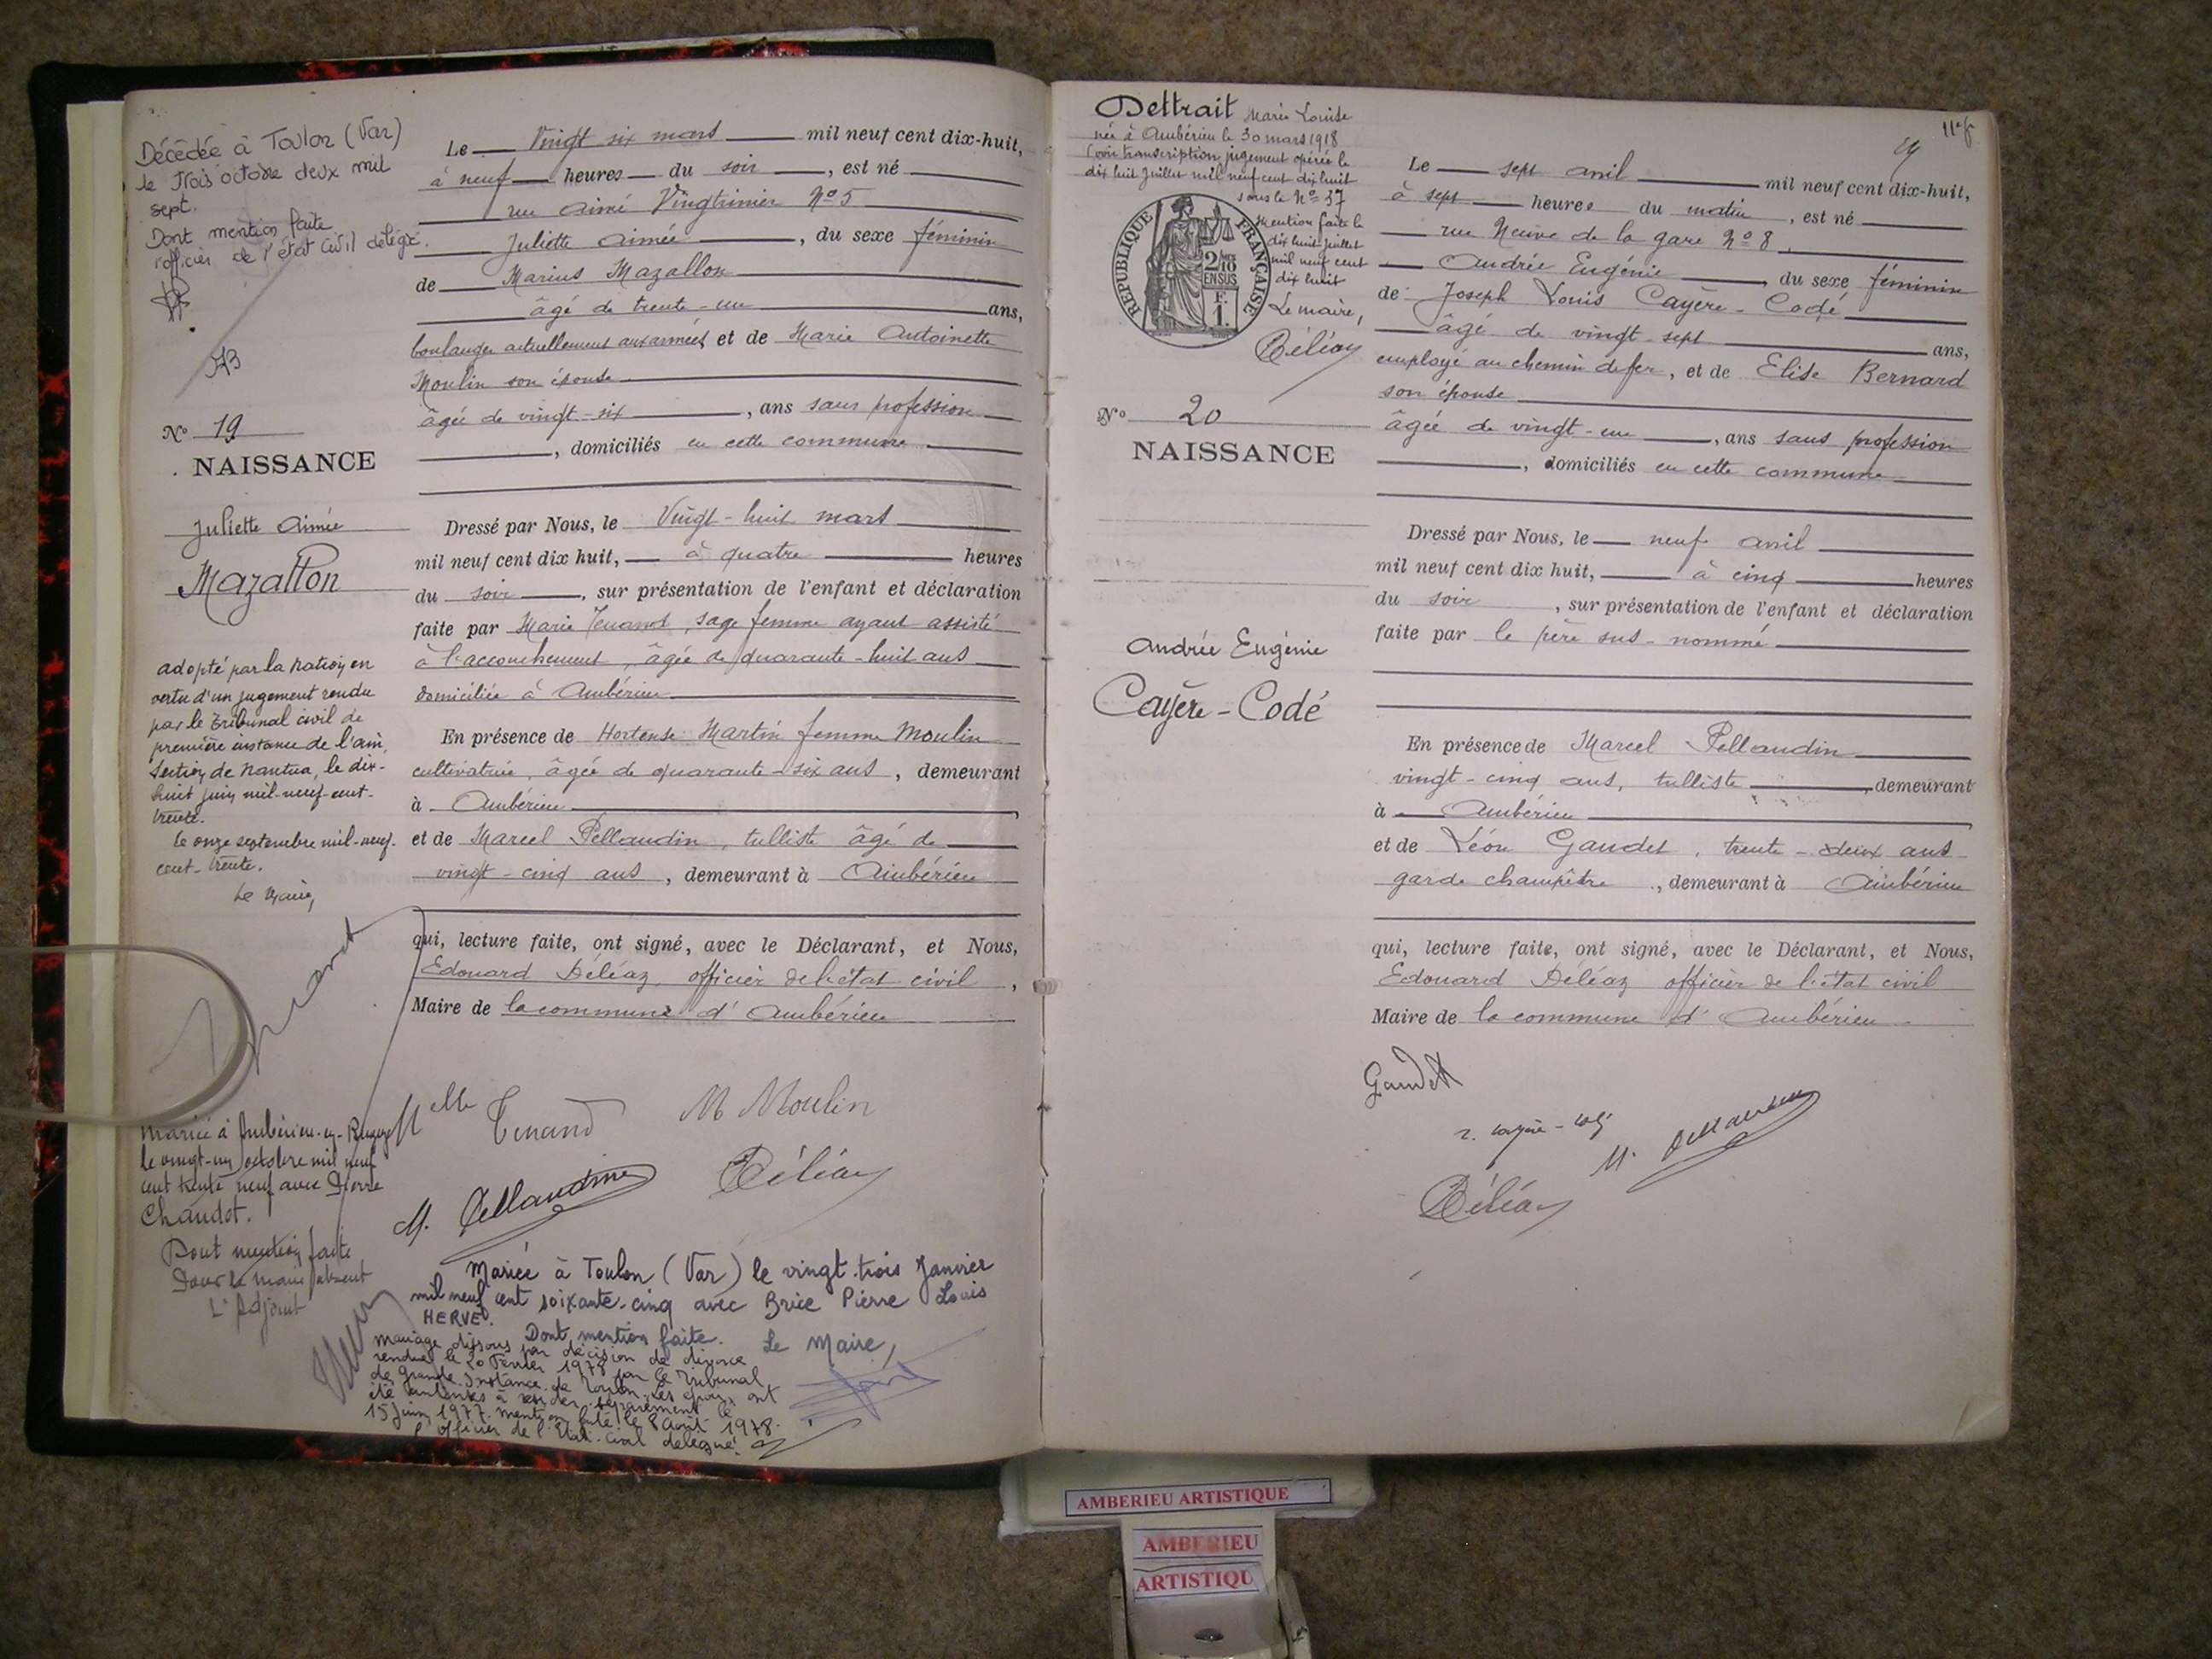 Décédée à Toulon (Var)
le trois octobre deux mil
sept.
Dont mention faite
l'officier de l'état civil délégué.
Le Vingt six mars mil neuf cent dix-huit,
à neuf heures du soir, est né
rue Aimé Vingtrinier No 5
Juliette Aimée, du sexe féminin
de Marius Mazallon
âgé de trente-un ans,
boulanger actuellement aux armées et de Marie Antoinette
Moulin son épouse
âgée de vingt-six, ans sans profession
, domiciliés en cette commune
No 19
NAISSANCE
Juliette Aimée
Mazallon
Dressé par Nous, le Vingt-huit mars
mil neuf cent dix huit, à quatre heures
du soir, sur présentation de l'enfant et déclaration
faite par Marie Tenand, sage femme ayant assisté
à l'accouchement, âgée de quarante-huit ans
domiciliée à Ambérieu
En présence de Hortense Martin femme Moulin
cultivatrice, âgée de quarante-six ans, demeurant
à Ambérieu
et de Marcel Pellaudin, tulliste âgé de
vingt-cinq ans, demeurant à Ambérieu
qui, lecture faite, ont signé, avec le Déclarant, et Nous,
Edouard Déléaz, officier de l'état civil,
Maire de la commune d'Ambérieu
adopté par la nation en
vertu d'un jugement rendu
par le Tribunal civil de
première instance de l'ain,
Section de Nantua, le dix-
huit juin mil-neuf-cent-
trente.
le onze septembre mil-neuf-
cent-trente.
Le Maire,
Mlle Tenand M Moulin
M. Pellaudin Déléaz
Mariée à Ambérieu-en-Bugey
le vingt-un octobre mil neuf
cent trente neuf avec Pierre
Chaudot.
Dont mention faite
Pour le maire absent
L'Adjoint
Mariée à Toulon (Var) le vingt-trois Janvier
mil neuf cent soixante-cinq avec Brice Pierre Louis
HERVÉ.
Dont mention faite. Le Maire,
Mariage dissous par décision de divorce
rendue le 20 Février 1978 par le Tribunal
de Grande Instance de Toulon. Les époux ont
été autorisés à résider séparément le
15 Juin 1977. mention faite le 8 Août 1978.
l'officier de l'Etat-Civil délégué.
Dettrait Marie Louise
née à Ambérieu le 30 mars 1918
(voir transcription jugement opérée le
dix huit Juillet mil neuf cent dix huit
sous le No 37
Mention faite le
dix huit juillet
mil neuf cent
dix huit
Le maire,
Déléaz
RÉPUBLIQUE FRANÇAISE
2/10
EN SUS
F.
1.
Le sept avril mil neuf cent dix-huit,
à sept heures du matin, est né
rue Neuve de la gare No 8,
Andrée Eugénie, du sexe féminin
de Joseph Louis Cayère-Codé
âgé de vingt-sept ans,
employé au chemin de fer, et de Elise Bernard
son épouse
âgée de vingt-une, ans sans profession
, domiciliés en cette commune
No 20
NAISSANCE
Andrée Eugénie
Cayère-Codé
Dressé par Nous, le neuf avril
mil neuf cent dix huit, à cinq heures
du soir, sur présentation de l'enfant et déclaration
faite par le père sus-nommé
En présence de Marcel Pellaudin
vingt-cinq ans, tulliste, demeurant
à Ambérieu
et de Léon Gaudet, trente-deux ans
garde champêtre, demeurant à Ambérieu
qui, lecture faite, ont signé, avec le Déclarant, et Nous,
Edouard Déléaz officier de l'état civil
Maire de la commune d'Ambérieu
Gaudet
M. Pellaudin
Déléaz
AMBERIEU ARTISTIQUE
AMBERIEU
ARTISTIQU